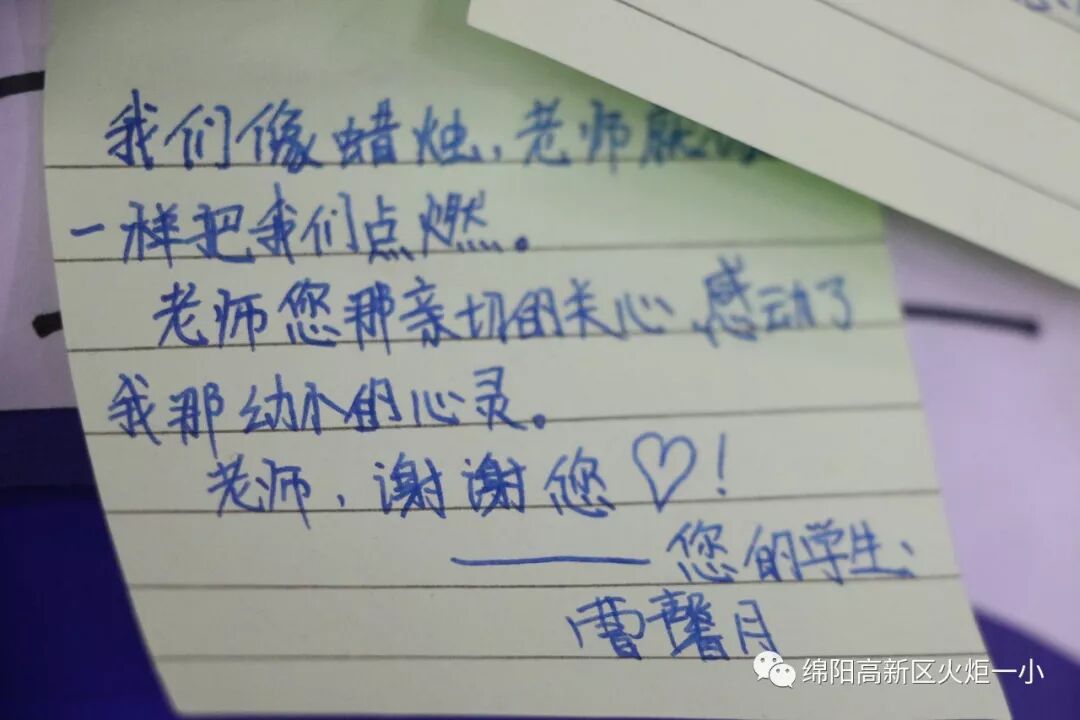 我们像蜡烛，老师就
一样把我们点燃。
老师您那亲切的关心，感动了
我那幼小的心灵。
老师，谢谢您♡！
——您的学生：
曹馨月
绵阳高新区火炬一小